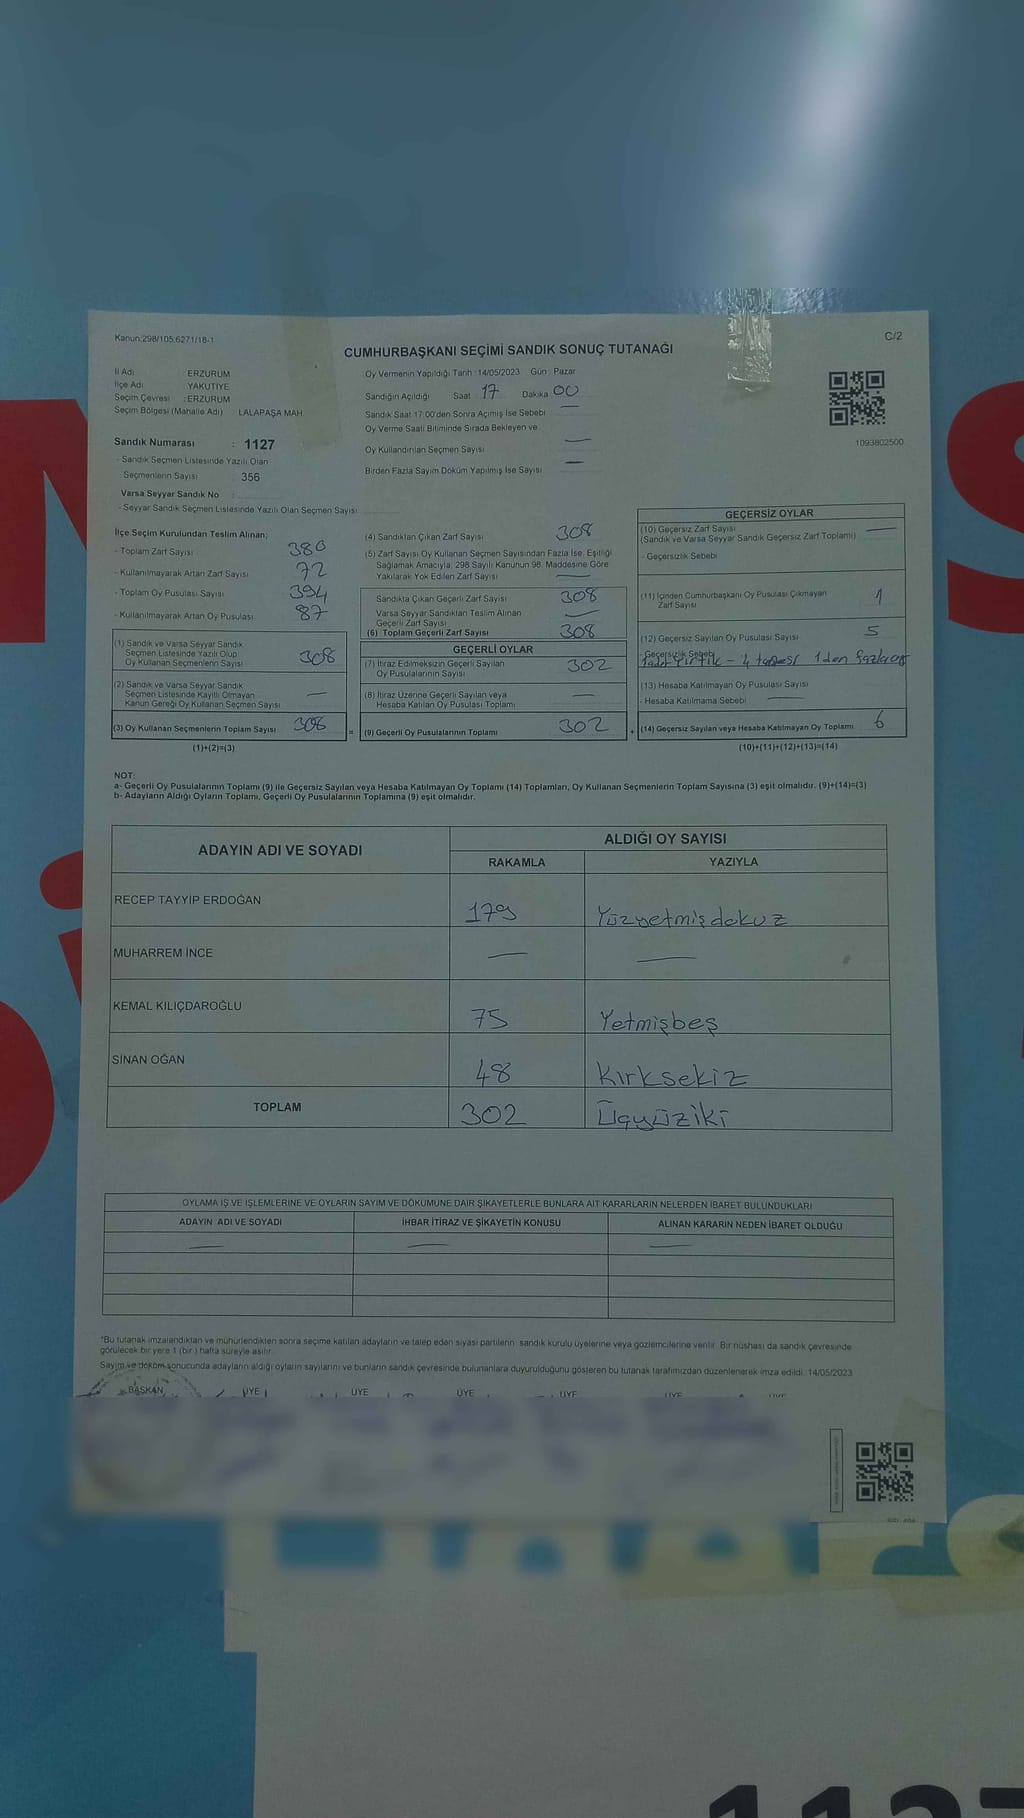 Kanun:298/105,6271/18-1
C/2
CUMHURBAŞKANI SEÇİMİ SANDIK SONUÇ TUTANAĞI
İl Adı : ERZURUM
İlçe Adı : YAKUTİYE
Seçim Çevresi : ERZURUM
Seçim Bölgesi (Mahalle Adı) : LALAPAŞA MAH.
Sandık Numarası : 1127
- Sandık Seçmen Listesinde Yazılı Olan
Seçmenlerin Sayısı 356
Varsa Seyyar Sandık No :
- Seyyar Sandık Seçmen Listesinde Yazılı Olan Seçmen Sayısı
Oy Vermenin Yapıldığı Tarih :14/05/2023 Gün : Pazar
Sandığın Açıldığı Saat 17 Dakika 00
Sandık Saat 17:00'den Sonra Açılmış İse Sebebi —
Oy Verme Saati Bitiminde Sırada Bekleyen ve
Oy Kullandırılan Seçmen Sayısı —
Birden Fazla Sayım Döküm Yapılmış İse Sayısı —
1093802500
İlçe Seçim Kurulundan Teslim Alınan;
- Toplam Zarf Sayısı 380
- Kullanılmayarak Artan Zarf Sayısı 72
- Toplam Oy Pusulası Sayısı 394
- Kullanılmayarak Artan Oy Pusulası 87
(1) Sandık ve Varsa Seyyar Sandık
Seçmen Listesinde Yazılı Olup
Oy Kullanan Seçmenlerin Sayısı 308
(2) Sandık ve Varsa Seyyar Sandık
Seçmen Listesinde Kayıtlı Olmayan
Kanun Gereği Oy Kullanan Seçmen Sayısı —
(3) Oy Kullanan Seçmenlerin Toplam Sayısı 308
(1)+(2)=(3)
(4) Sandıktan Çıkan Zarf Sayısı 308
(5) Zarf Sayısı Oy Kullanan Seçmen Sayısından Fazla İse, Eşitliği
Sağlamak Amacıyla, 298 Sayılı Kanunun 98. Maddesine Göre
Yakılarak Yok Edilen Zarf Sayısı —
Sandıkta Çıkan Geçerli Zarf Sayısı 308
Varsa Seyyar Sandıktan Teslim Alınan
Geçerli Zarf Sayısı —
(6) Toplam Geçerli Zarf Sayısı 308
GEÇERLİ OYLAR
(7) İtiraz Edilmeksizin Geçerli Sayılan
Oy Pusulalarının Sayısı 302
(8) İtiraz Üzerine Geçerli Sayılan veya
Hesaba Katılan Oy Pusulası Toplamı —
(9) Geçerli Oy Pusulalarının Toplamı 302
GEÇERSİZ OYLAR
(10) Geçersiz Zarf Sayısı —
(Sandık ve Varsa Seyyar Sandık Geçersiz Zarf Toplamı)
- Geçersizlik Sebebi
(11) İçinden Cumhurbaşkanı Oy Pusulası Çıkmayan
Zarf Sayısı 1
(12) Geçersiz Sayılan Oy Pusulası Sayısı 5
- Geçersizlik Sebebi
1 adet Yırtık - 4 tanesi 1den fazla oy
(13) Hesaba Katılmayan Oy Pusulası Sayısı
- Hesaba Katılmama Sebebi —
(14) Geçersiz Sayılan veya Hesaba Katılmayan Oy Toplamı 6
(10)+(11)+(12)+(13)=(14)
NOT:
a- Geçerli Oy Pusulalarının Toplamı (9) ile Geçersiz Sayılan veya Hesaba Katılmayan Oy Toplamı (14) Toplamları, Oy Kullanan Seçmenlerin Toplam Sayısına (3) eşit olmalıdır. (9)+(14)=(3)
b- Adayların Aldığı Oyların Toplamı, Geçerli Oy Pusulalarının Toplamına (9) eşit olmalıdır.
ADAYIN ADI VE SOYADI ALDIĞI OY SAYISI
RAKAMLA YAZIYLA
RECEP TAYYİP ERDOĞAN 179 Yüzyetmişdokuz
MUHARREM İNCE — —
KEMAL KILIÇDAROĞLU 75 Yetmişbeş
SİNAN OĞAN 48 Kırksekiz
TOPLAM 302 Üçyüziki
OYLAMA İŞ VE İŞLEMLERİNE VE OYLARIN SAYIM VE DÖKÜMÜNE DAİR ŞİKAYETLERLE BUNLARA AİT KARARLARIN NELERDEN İBARET BULUNDUKLARI
ADAYIN ADI VE SOYADI İHBAR İTİRAZ VE ŞİKAYETİN KONUSU ALINAN KARARIN NEDEN İBARET OLDUĞU
— — —
*Bu tutanak imzalandıktan ve mühürlendikten sonra seçime katılan adayların ve talep eden siyasi partilerin sandık kurulu üyelerine veya gözlemcilerine verilir. Bir nüshası da sandık çevresinde
görülecek bir yere 1 (bir ) hafta süreyle asılır.
Sayım ve döküm sonucunda adayların aldığı oyların sayılarını ve bunların sandık çevresinde bulunanlara duyurulduğunu gösteren bu tutanak tarafımızdan düzenlenerek imza edildi. 14/05/2023
BAŞKAN ÜYE ÜYE ÜYE ÜYE ÜYE ÜYE
1127